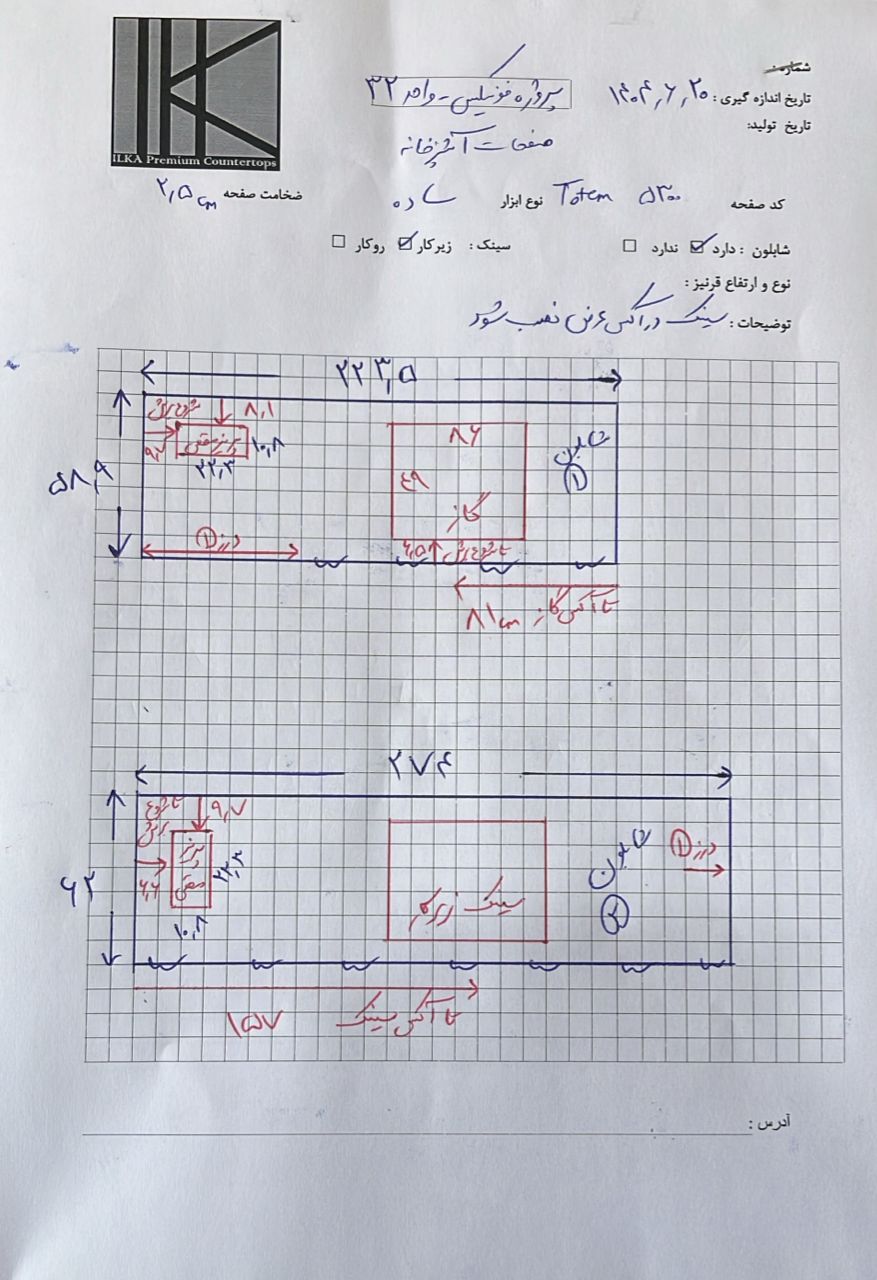 ILKA Premium Countertops
شماره:
تاریخ اندازه گیری: ۱۴۰۴٫۶٫۲۰
تاریخ تولید:
پروژه فونیکس - واحد ۳۲
صفحات آشپزخانه
کد صفحه Totem ۵۳۰۰ نوع ابزار ساده ضخامت صفحه ۲٫۵ cm
شابلون : دارد ☑ ندارد ☐ سینک : زیرکار ☑ روکار ☐
نوع و ارتفاع قرنیز :
توضیحات : سینک در آکس عرض نصب شود
۲۲۳٫۵
۵۸٫۹
شروع برش
۸٫۱
۹٫۷
پریز سقفی
۱۰٫۸
۲۲٫۳
۸۶
۴۹
گاز
شابلون
۱
درز ۱
۶٫۵
تا شروع برش
تا آکس گاز ۸۱ cm
۲۷۴
۶۲
تا شروع برش
۹٫۷
۶٫۶
۲۲٫۳
۱۰٫۸
سینک زیرکار
شابلون
۲
درز ۱
تا آکس سینک ۱۵۷
آدرس :